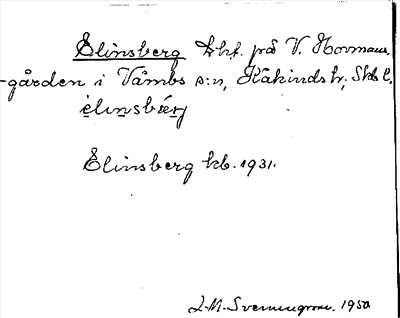 Elinsberg t:hf. på V. Norrmans-
gården i Våmbs s:n, Kåkinds hr, Skb l.
èlinsbærj
Elinsberg kb. 1931.
L.M. Svenungsson. 1950